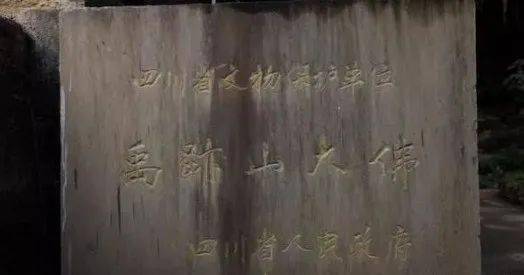 四川省文物保护单位
禹跡山大佛
四川省人民政府